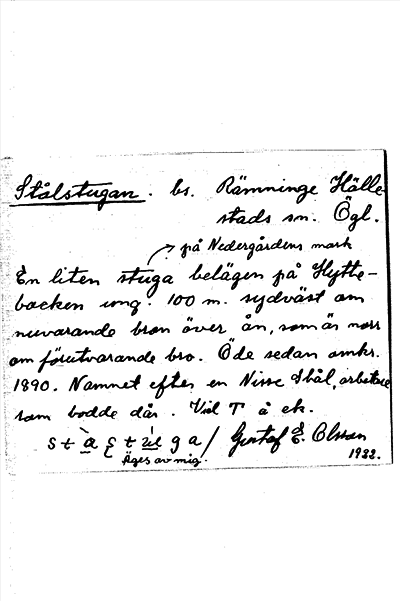 Stålstugan. bs. Rämninge Hälle-
stads sn. Ögl.
på Nedergårdens mark
En liten stuga belägen på Hytte-
backen ung. 100 m. sydväst om
nuvarande bron över ån, som är norr
om förutvarande bro. Öde sedan omkr.
1890. Namnet efter en Nisse Stål, arbetare
som bodde där. Vid T å ek.
Gustaf E. Olsson
Äges av mig.
1932.